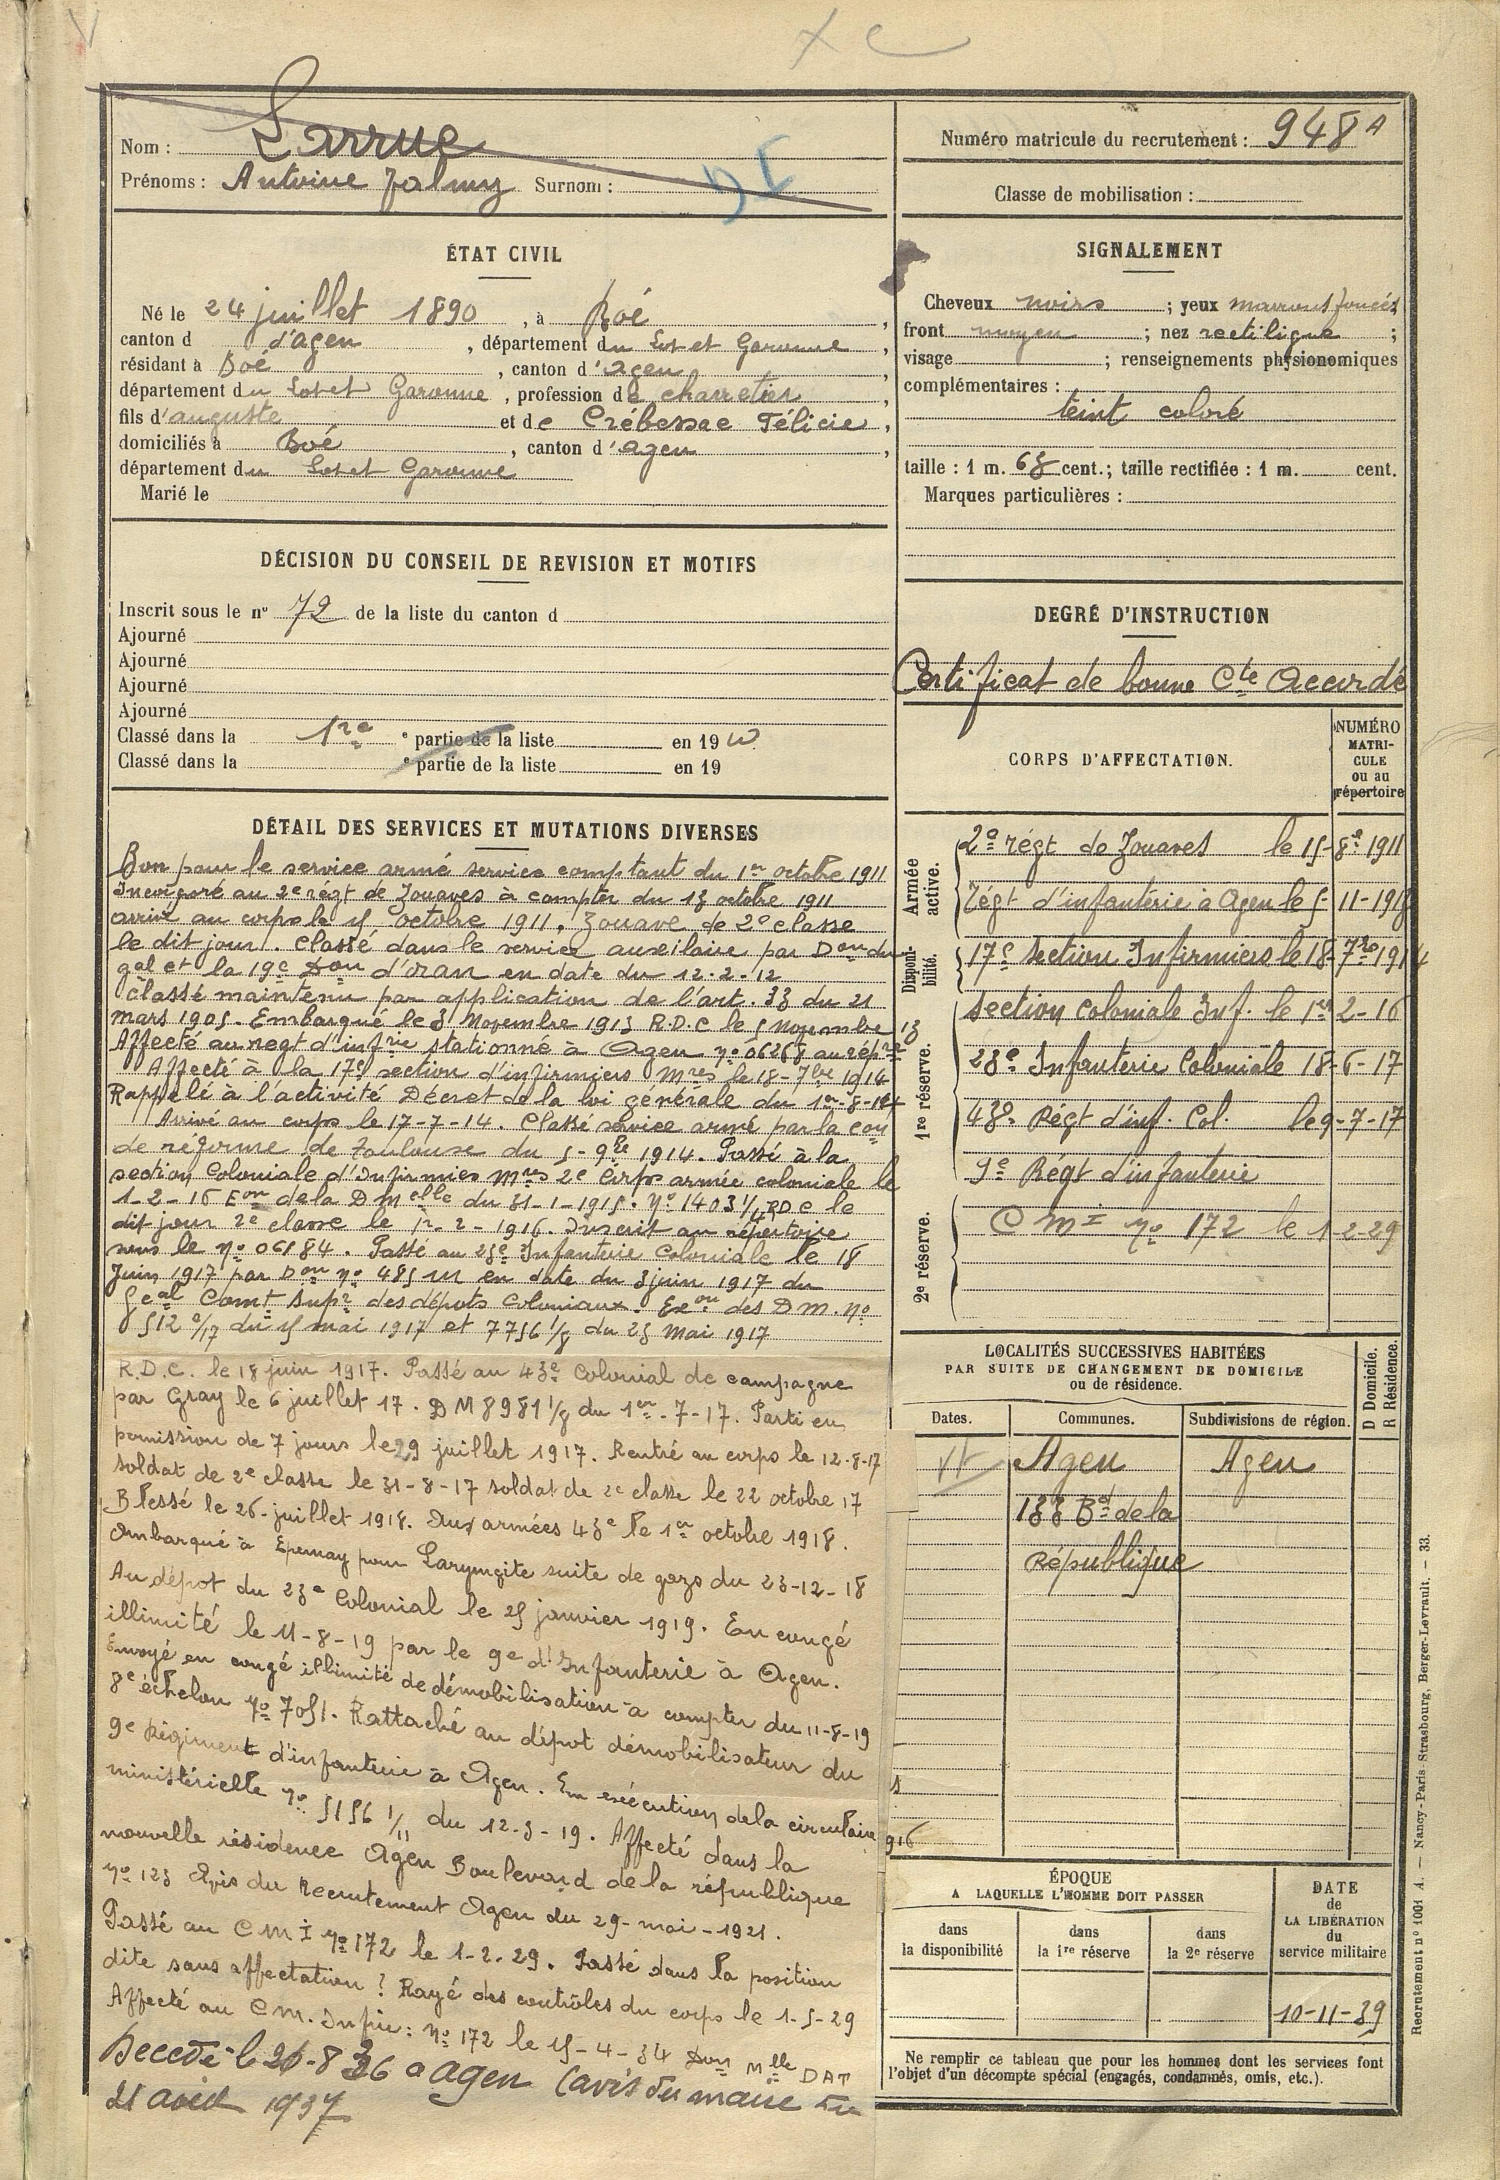 Nom : Larrue
Prénoms : Antoine Valmy Surnom :
Numéro matricule du recrutement : 948 A
Classe de mobilisation :
ÉTAT CIVIL
Né le 24 juillet 1890, à Boé,
canton d d'agen, département du Lot et Garonne,
résidant à Boé, canton d'agen,
département du Lot et Garonne, profession de charretier,
fils d'auguste et de Crébessac Félicie,
domiciliés à Boé, canton d'agen,
département du Lot et Garonne
Marié le
SIGNALEMENT
Cheveux noirs ; yeux marrons foncés,
front moyen ; nez rectiligne ;
visage ; renseignements physionomiques
complémentaires :
teint coloré
taille : 1 m. 68 cent.; taille rectifiée : 1 m. cent.
Marques particulières :
DÉCISION DU CONSEIL DE REVISION ET MOTIFS
Inscrit sous le nº 72 de la liste du canton d
Ajourné
Ajourné
Ajourné
Ajourné
Classé dans la 1re e partie de la liste en 19
Classé dans la e partie de la liste en 19
DEGRÉ D'INSTRUCTION
Certificat de bonne Cte Accordé
CORPS D'AFFECTATION.
NUMÉRO
MATRI-
CULE
ou au
répertoire
Armée active.
2e régt de Zouaves le 15-8re 1911
Régt d'infanterie à Agen le 5-11-1913
Disponibilité.
17e section Infirmiers le 18-7re 1914
1re réserve.
section coloniale Inf. le 1er 2-16
23e Infanterie Coloniale 18-6-17
43e Régt d'inf. Col. le 9-7-17
9e Régt d'infanterie
2e réserve.
C M I No 172 le 1-2-29
DÉTAIL DES SERVICES ET MUTATIONS DIVERSES
Bon pour le service armé service comptant du 1er octobre 1911
Incorporé au 2e régt de Zouaves à compter du 13 octobre 1911
arrivé au corps le 15 octobre 1911, Zouave de 2e classe
le dit jour. Classé dans le service auxiliaire par Don du
gal et la 19e Don d'oran en date du 12-2-12
Classé maintenu par application de l'art. 33 du 21
mars 1905. Embarqué le 3 Novembre 1913 R.D.C le 5 Novembre 13
Affecté au regt d'infrie stationné à Agen No 06268 au réptre
Affecté à la 17e section d'infirmiers Mres le 18-7bre 1914
Rappelé à l'activité Décret de la loi générale du 1er-8-14
Arrivé au corps le 17-7-14. Classé service armé par la Con
de réforme de Toulouse du 5-9re 1914. Passé à la
section Coloniale d'Infirmies Mres 2e Corps armée coloniale le
1-2-16 Eon de la D Melle du 31-1-1915. No 1403 1/ RDC le
dit jour 2e classe le 12-2-1916. Inscrit au répertoire
sous le No 06184. Passé au 23e Infanterie Coloniale le 18
Juin 1917 par Don No 485 M en date du 3 juin 1917 du
Geal Comt Supr des dépots Coloniaux. Exon des D M. No
512 c/17 du 15 mai 1917 et 7756 1/8 du 23 Mai 1917
R.D.C. le 18 juin 1917. Passé au 43e Colonial de campagne
par Gray le 6 juillet 17. DM 8981 1/8 du 1er-7-17. Parti en
permission de 7 jours le 29 juillet 1917. Rentré au corps le 12-8-17
soldat de 2e classe le 31-8-17 soldat de 2e classe le 22 octobre 17
Blessé le 26 juillet 1918. Aux armées 43e le 1er octobre 1918.
Embarqué à Epernay pour Laryngite suite de gazs du 23-12-18
Au dépot du 23e Colonial le 25 janvier 1919. En congé
illimité le 11-8-19 par le 9e d'Infanterie à Agen.
Envoyé en congé illimité de démobilisation à compter du 11-8-19
8e échelon No 7051. Rattaché au dépot démobilisateur du
9e Régiment d'infanterie à Agen. En exécution de la circulaire
ministérielle No 5156 1/11 du 12-3-19. Affecté dans la
nouvelle résidence Agen Boulevard de la république
No 123 Avis du Recrutement Agen du 29-mai-1921.
Passé au C M I No 172 le 1-2-29. Passé dans la position
dite sans affectation ? Rayé des contrôles du corps le 1-5-29
Affecté au C M. Infie : No 172 le 15-4-34 Don Mlle DAT
Decedé le 26-8 36 a Agen (avis du maire du
21 août 1937
LOCALITÉS SUCCESSIVES HABITÉES
PAR SUITE DE CHANGEMENT DE DOMICILE
ou de résidence.
D Domicile.
R Résidence.
Dates.
Communes.
Subdivisions de région.
Agen Agen
133 Bd de la
République
ÉPOQUE
A LAQUELLE L'HOMME DOIT PASSER
dans
la disponibilité
dans
la 1re réserve
dans
la 2e réserve
DATE
de
LA LIBÉRATION
du
service militaire
10-11-39
Ne remplir ce tableau que pour les hommes dont les services font
l'objet d'un décompte spécial (engagés, condamnés, omis, etc.).
Recrutement nº 1001 A. — Nancy-Paris-Strasbourg, Berger-Levrault. — 33.